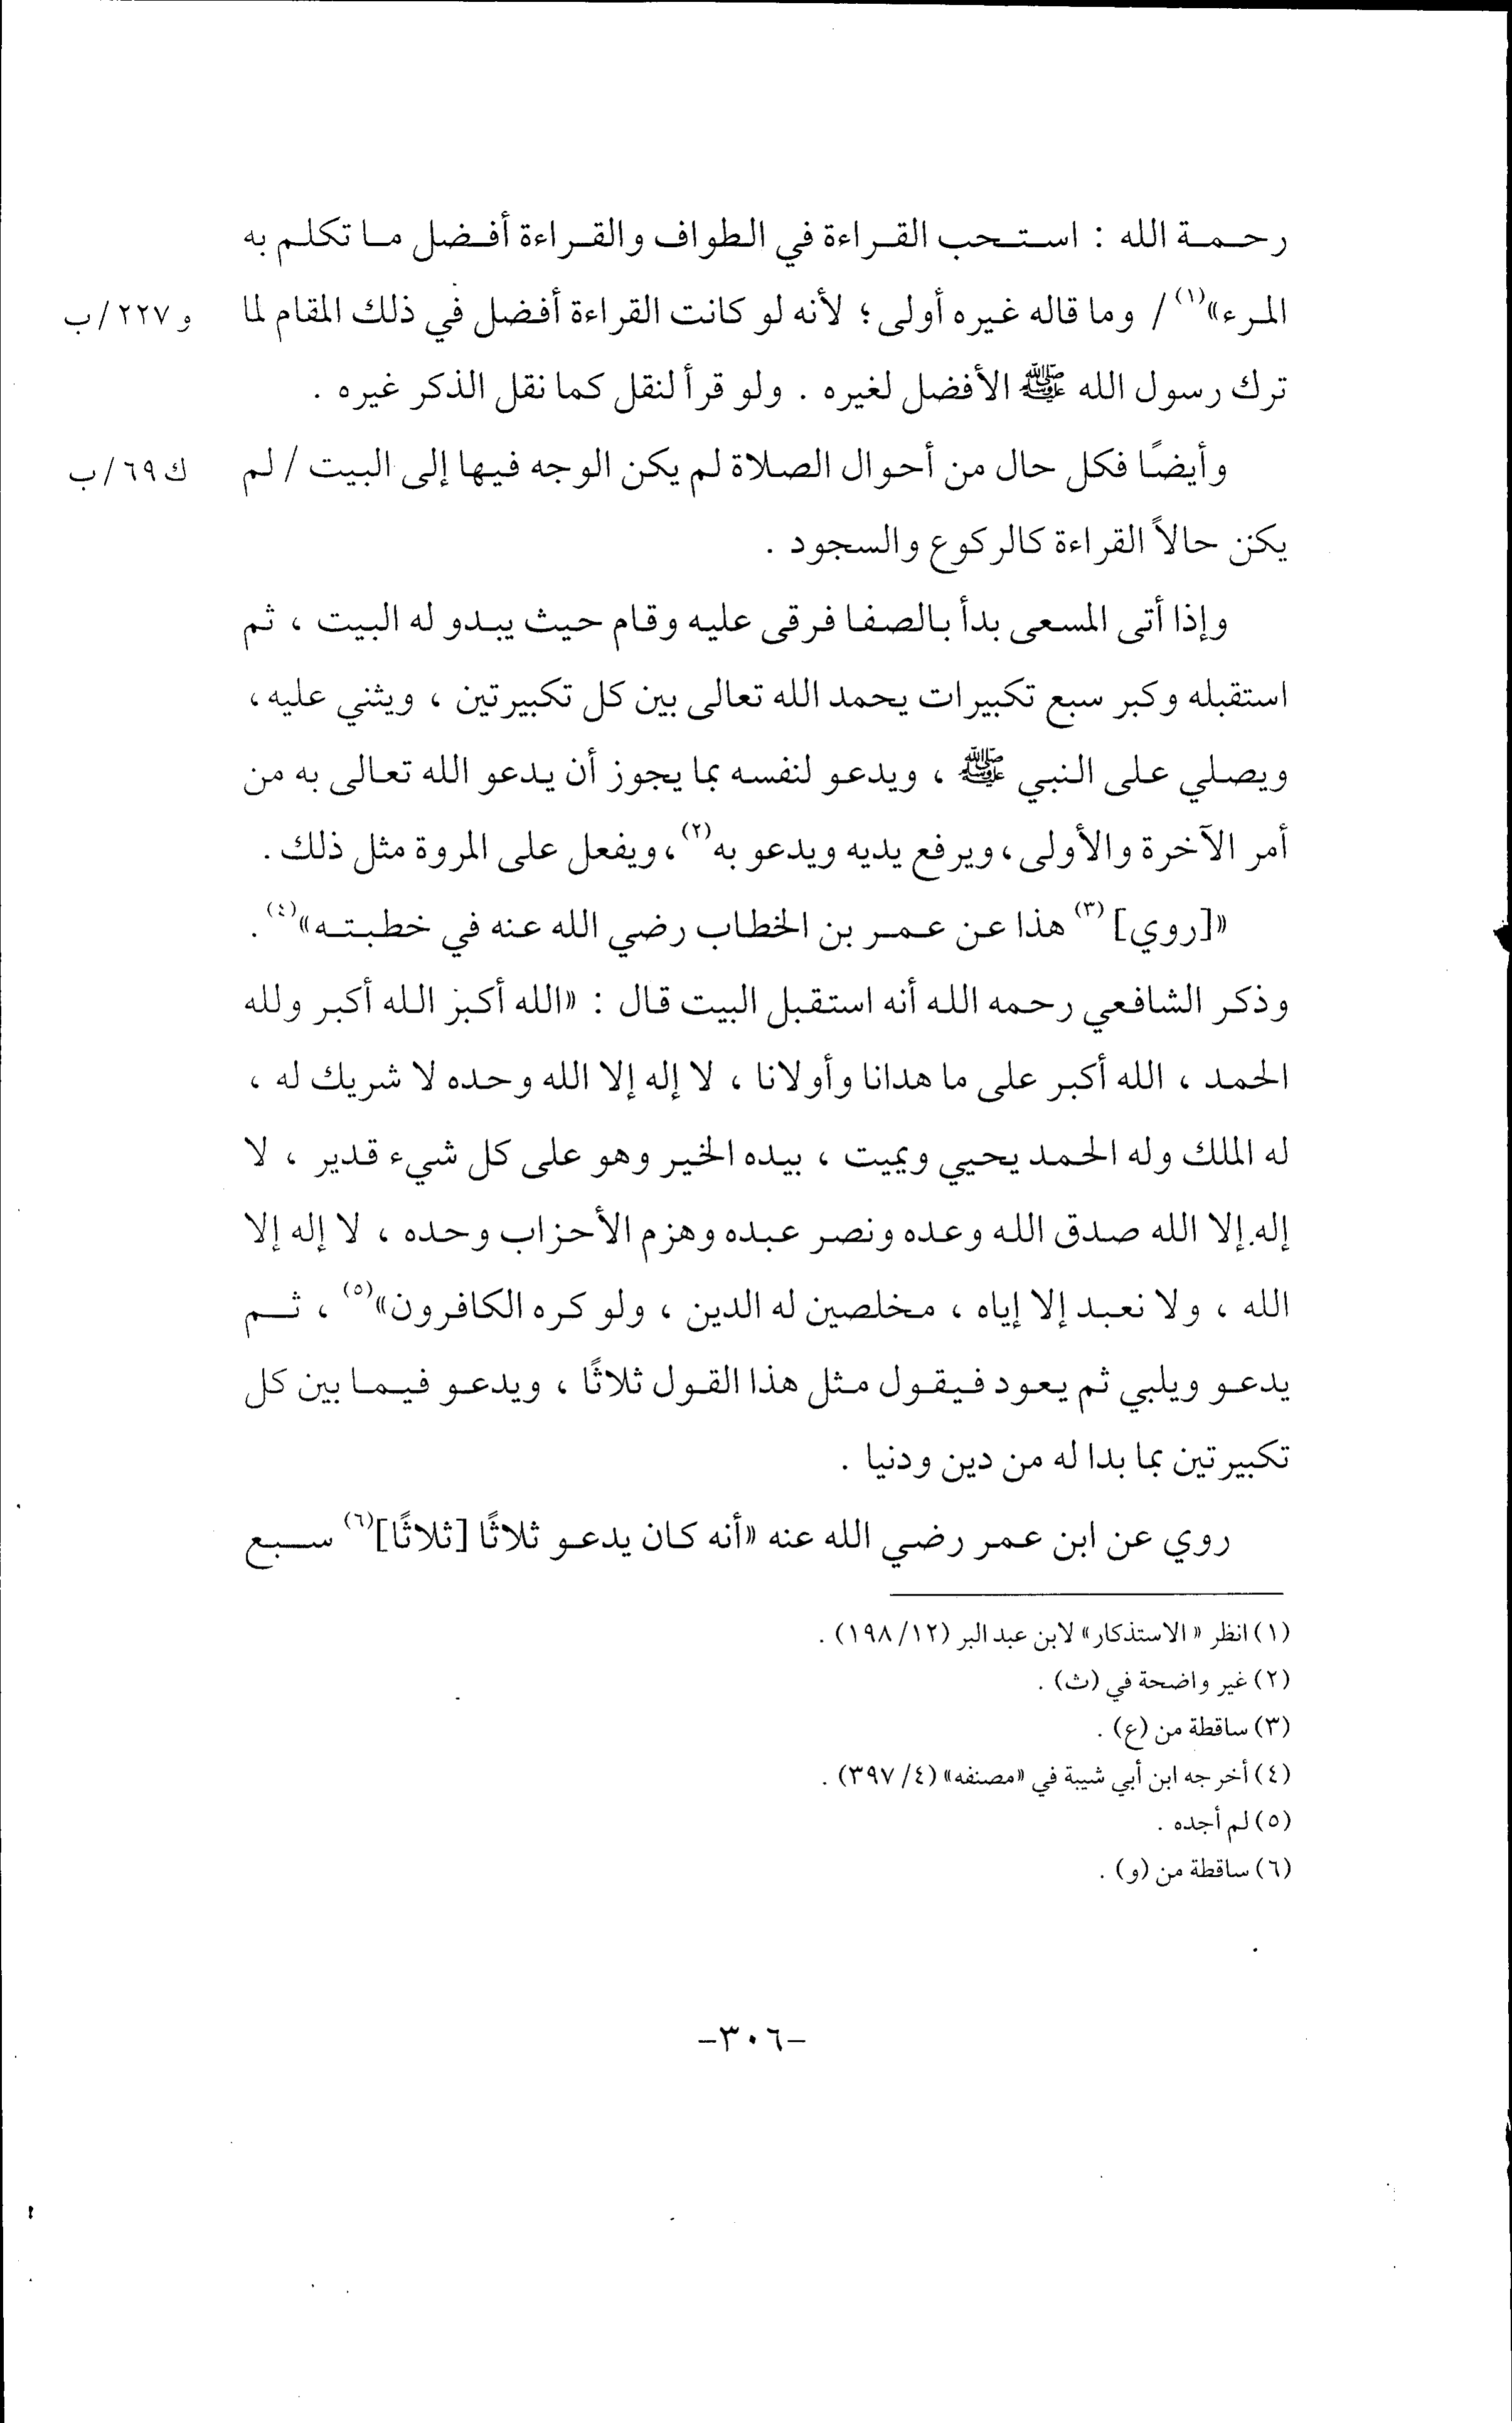 رحمة الله : استحب القراءة في الطواف والقراءة أفضل ما تكلم به
المرء»(١) / وما قاله غيره أولى ؛ لأنه لو كانت القراءة أفضل في ذلك المقام لما
و ٢٢٧ / ب
ترك رسول الله ﷺ الأفضل لغيره . ولو قرأ لنقل كما نقل الذكر غيره .
وأيضًا فكل حال من أحوال الصلاة لم يكن الوجه فيها إلى البيت / لم
ك ٦٩ / ب
يكن حالاً القراءة كالركوع والسجود .
وإذا أتى المسعى بدأ بالصفا فرقى عليه وقام حيث يبدو له البيت ، ثم
استقبله وكبر سبع تكبيرات يحمد الله تعالى بين كل تكبيرتين ، ويثني عليه،
ويصلي على النبي ﷺ ، ويدعو لنفسه بما يجوز أن يدعو الله تعالى به من
أمر الآخرة والأولى، ويرفع يديه ويدعو به(٢)، ويفعل على المروة مثل ذلك .
«[روي](٣) هذا عن عمر بن الخطاب رضي الله عنه في خطبته»(٤) .
وذكر الشافعي رحمه الله أنه استقبل البيت قال : «الله أكبر الله أكبر ولله
الحمد ، الله أكبر على ما هدانا وأولانا ، لا إله إلا الله وحده لا شريك له ،
له الملك وله الحمد يحيي ويميت ، بيده الخير وهو على كل شيء قدير ، لا
إله إلا الله صدق الله وعده ونصر عبده وهزم الأحزاب وحده ، لا إله إلا
الله ، ولا نعبد إلا إياه ، مخلصين له الدين ، ولو كره الكافرون»(٥) ، ثم
يدعو ويلبي ثم يعود فيقول مثل هذا القول ثلاثًا ، ويدعو فيما بين كل
تكبيرتين بما بدا له من دين ودنيا .
روي عن ابن عمر رضي الله عنه «أنه كان يدعو ثلاثًا [ثلاثًا](٦) سبع
(١) انظر « الاستذكار» لابن عبد البر (١٢/ ١٩٨) .
(٢) غير واضحة في (ث) .
(٣) ساقطة من (ع) .
(٤) أخرجه ابن أبي شيبة في «مصنفه» (٤/ ٣٩٧) .
(٥) لم أجده .
(٦) ساقطة من (و) .
-٣٠٦-